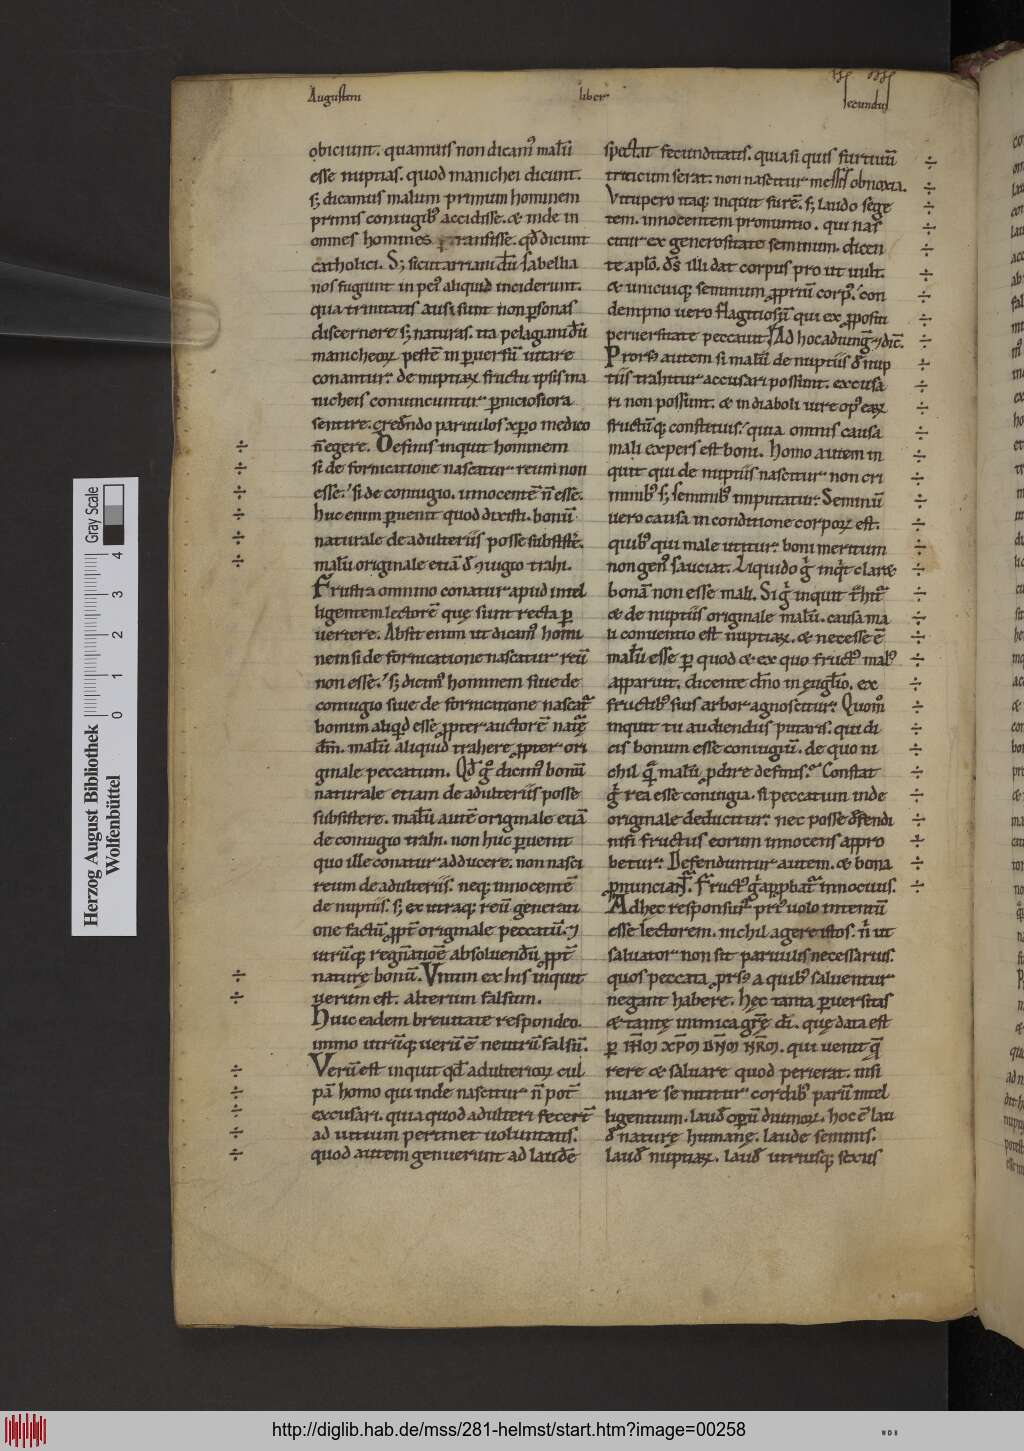 Augustini liber secundus
obiciunt. quamuis non dicam᷒ malū
esse nuptias. quod manichei dicunt.
s; dicamus malum primum hominem
primis coniugib᷒ accidisse. & inde in
omnes homines ꝑtransisse. qđ dicunt
catholici. S; sicut arriani dū sabellia
nos fugiunt in pei᷒ aliquid inciderunt.
qua trinitatis ausi sunt non ꝑsonas
discernere s; naturas. ita pelagiani dū
manicheoꝝ pestē in ꝑuersū uitare
conantur: de nuptiaꝝ fructu ipsis ma
nicheis conuincuntur ꝑniciosiora
sentire. credendo paruulos xp̄o medico
n̄ egere. Definis inquit hominem
si de fornicatione nascatur reum non
esse. si de coniugio. innocentē n̄ esse.
huc enim ꝑuenit quod dixisti. bonū
naturale de adulteriis posse subsistē.
malū originale etiā đ ꝯiugio trahi.
Frustra omnino conatur apud intel
ligentem lectorē quę sunt recta ꝑ
uertere. Absit enim ut dicam᷒ homi
nem si de fornicatione nascatur reū
non esse. s; dicim᷒ hominem siue de
coniugio siue de fornicatione nascat᷑
bonum aliqid esse ꝓpter auctorē naturę
dm̄. malū aliquid trahere ꝓpter ori
ginale peccatum. Qđ g° dicim᷒ bonū
naturale etiam de adulteriis posse
subsistere. malū autē originale etiā
de coniugio trahi. non huc ꝑuenit
quo ille conatur adducere. non nasci
reum de adulteriis. neq; innocentē
de nuptiis. s; ex utraq; reū generati
one factū ꝓpt̄ originale peccatū. ⁊
utrūq; regn̄ationē absoluendū ꝓpt̄
naturę bonū. Vnum ex his inquit
uerum est. alterum falsum.
Huic eadem breuitate respondeo.
immo utrūq; uerū ē neutrū falsū.
Verū est inquit qđ adulterioꝝ cul
pā homo qui inde nascitur n̄ pot̄
excusari. quia quod adulteri fecerē
ad uitium pertinet uoluntatis.
quod autem genuerunt ad laudē
spectat fecunditatis. quia si quis furtiuū
triticum serat. non nascitur messis obnoxia.
Vitupero itaq; inquit furē. s; laudo sege
tem. innocentem pronuntio. qui nas
citur ex generositate seminum. dicen
te aplō. ds̄ illi dat corpus pro ut uult.
& unicuiq; seminum ꝓpriū corp᷒. con
dempno uero flagitiosū qui ex ꝓpositi
peruersitate peccauit. Ad hoc adiung̃ ⁊ dic̄.
Prors᷒ autem si malū de nuptiis đ nup
tiis trahitur accusari possunt. excusa
ri non possunt. & in diaboli iure op᷒ eaꝝ
fructūq; constituis. quia omnis causa
mali expers est boni. Homo autem in
quit qui de nuptiis nascitur non cri
minib᷒ s; seminib᷒ imputatur. Seminū
uero causa in conditione corpoꝝ est.
quib᷒ qui male utitur: boni meritum
non gen᷒ sauciat. Liquido g̊ inqt̄ claret
bonā non esse mali. Si g̊ inquit
& de nuptiis originale malū. causa ma
li conuentio est nuptiaꝝ. & necesse ē
malū esse ꝑ quod & ex quo fruct᷒ mal᷒
apparuit. dicente dn̄o in ęuglīo. ex
fructib᷒ suis arbor agnoscitur. Quom᷒
inquit tu audiendus putaris. qui di
cis bonum esse coniugiū. de quo ni
chil q̄ malū ꝓdire definis? Constat
g̊ rea esse coniugia. si peccatum inde
originale deducitur: nec posse đfendi
nisi fructus eorum innocens appro
betur: Defenduntur autem. & bona
ꝓnuncianŧ. Fruct᷒ g̊ apꝓbat᷑ innocuus.
Ad hec responsur᷒ pri᷒ uolo intentū
esse lectorem. nichil agere istos. n̄ ut
saluator non sit paruulis necessarius.
quos peccata prs᷒ a quib᷒ saluentur
negant habere. hęc tanta ꝑuersitas
& tantę inimica grę̄ di̅. quę data est
ꝑ ihm̄ xpm̄ dnm̄ nrm̄. qui uenit q̄
rere & saluare quod perierat. insi
nuare se nititur cordib᷒ parū intel
ligentium. lauđ opū diuinoꝝ. hoc ē lau
đ naturę humanę. laude seminis.
lauđ nuptiaꝝ. lauđ utriusq; sexus
Herzog August Bibliothek
Wolfenbüttel
Gray Scale
0 1 2 3 4
http://diglib.hab.de/mss/281-helmst/start.htm?image=00258